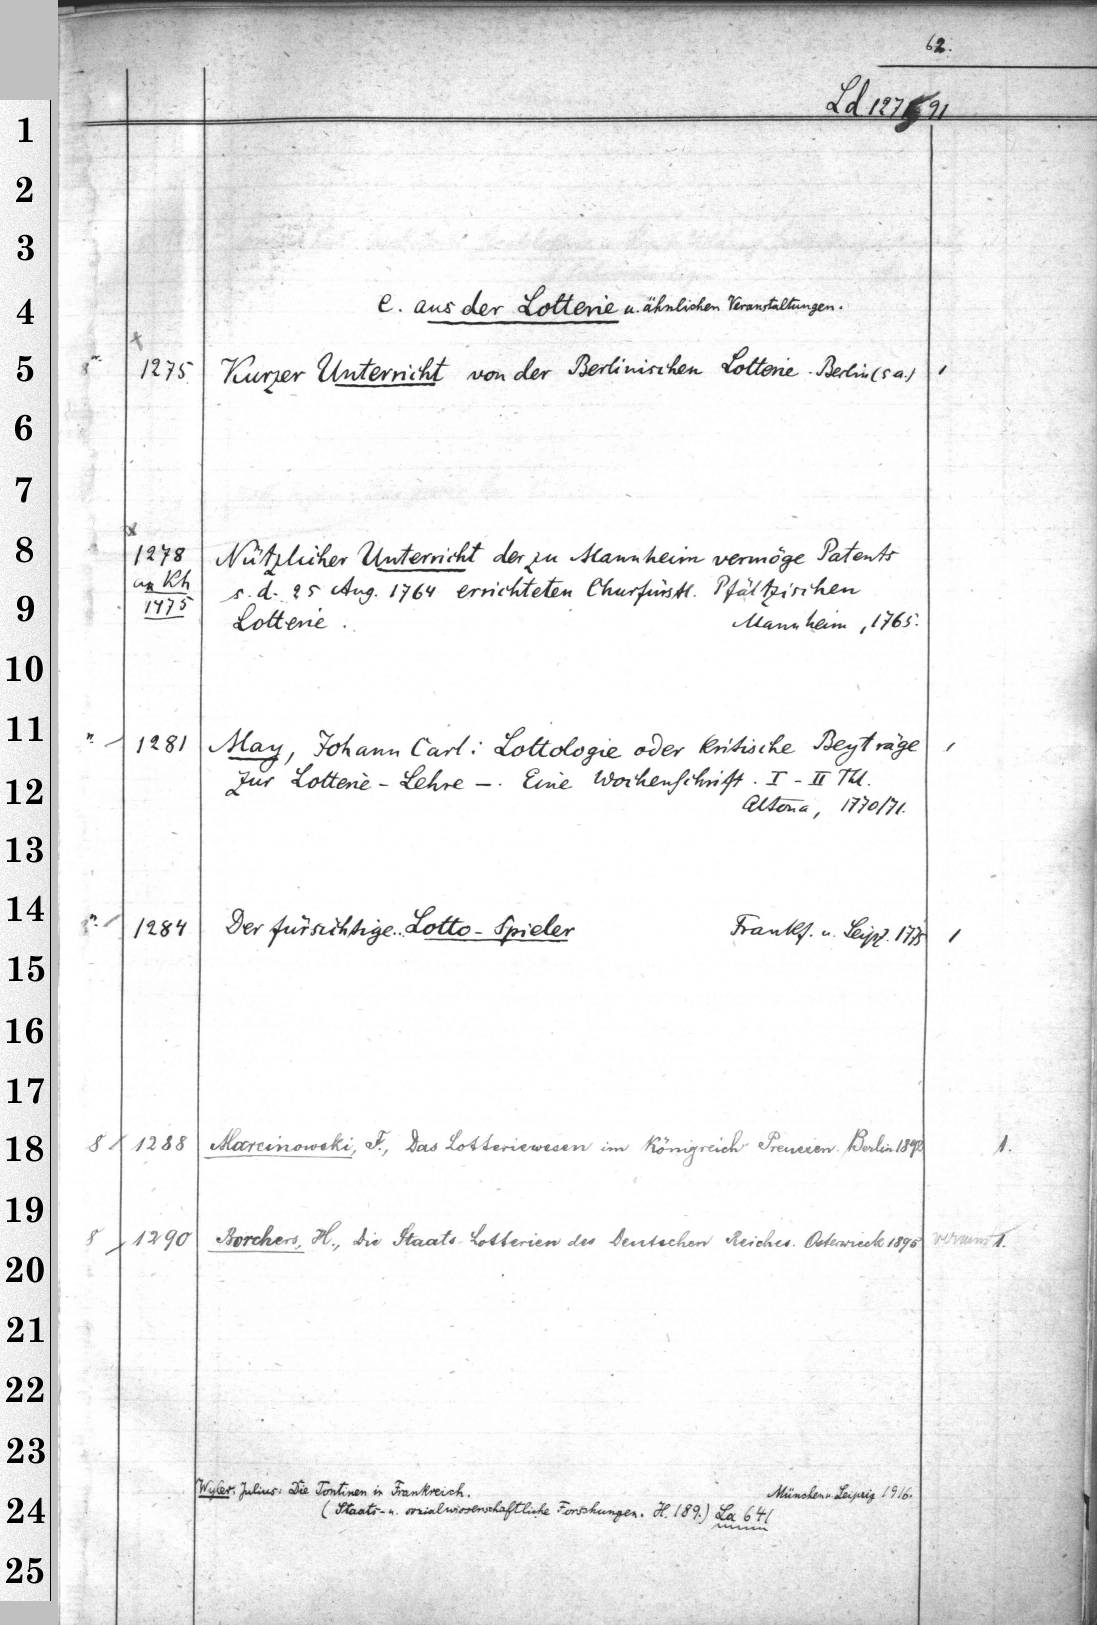 62.
Ld 1275/91
1
2
3
e. aus der Lotterie u. ähnlichen Veranstaltungen.
4
5 8°. 1275 Kurzer Unterricht von der Berlinischen Lotterie. Berlin (s a.) 1
6
7
8 1278 Nützlicher Unterricht der zu Mannheim vermöge Patents
an Kh s. d. 25 Aug. 1764 errichteten Churfürstl. Pfältzischen
9 1475 Lotterie. Mannheim, 1765.
10
11 ". 1281 May, Johann Carl: Lottologie oder kritische Beyträge 1
12 zur Lotterie-Lehre —. Eine Wochenschrift. I - II Thl.
Altona, 1770/71.
13
14 8°. 1284 Der fürsichtige.. Lotto-Spieler Frankf. u. Leipz. 1775 1
15
16
17
18 8 1288 Marcinowski, F., Das Lotteriewesen im Königreich Preussen. Berlin 1892 1.
19
8 1290 Borchers, H., Die Staats-Lotterien des Deutschen Reiches. Osterwieck 1895 vermisst 1.
20
21
22
23
Wyler, Julius: Die Tontinen in Frankreich. München u. Leipzig 1916.
24 (Staats- u. sozialwissenschaftliche Forschungen. H. 189.) La 641
25